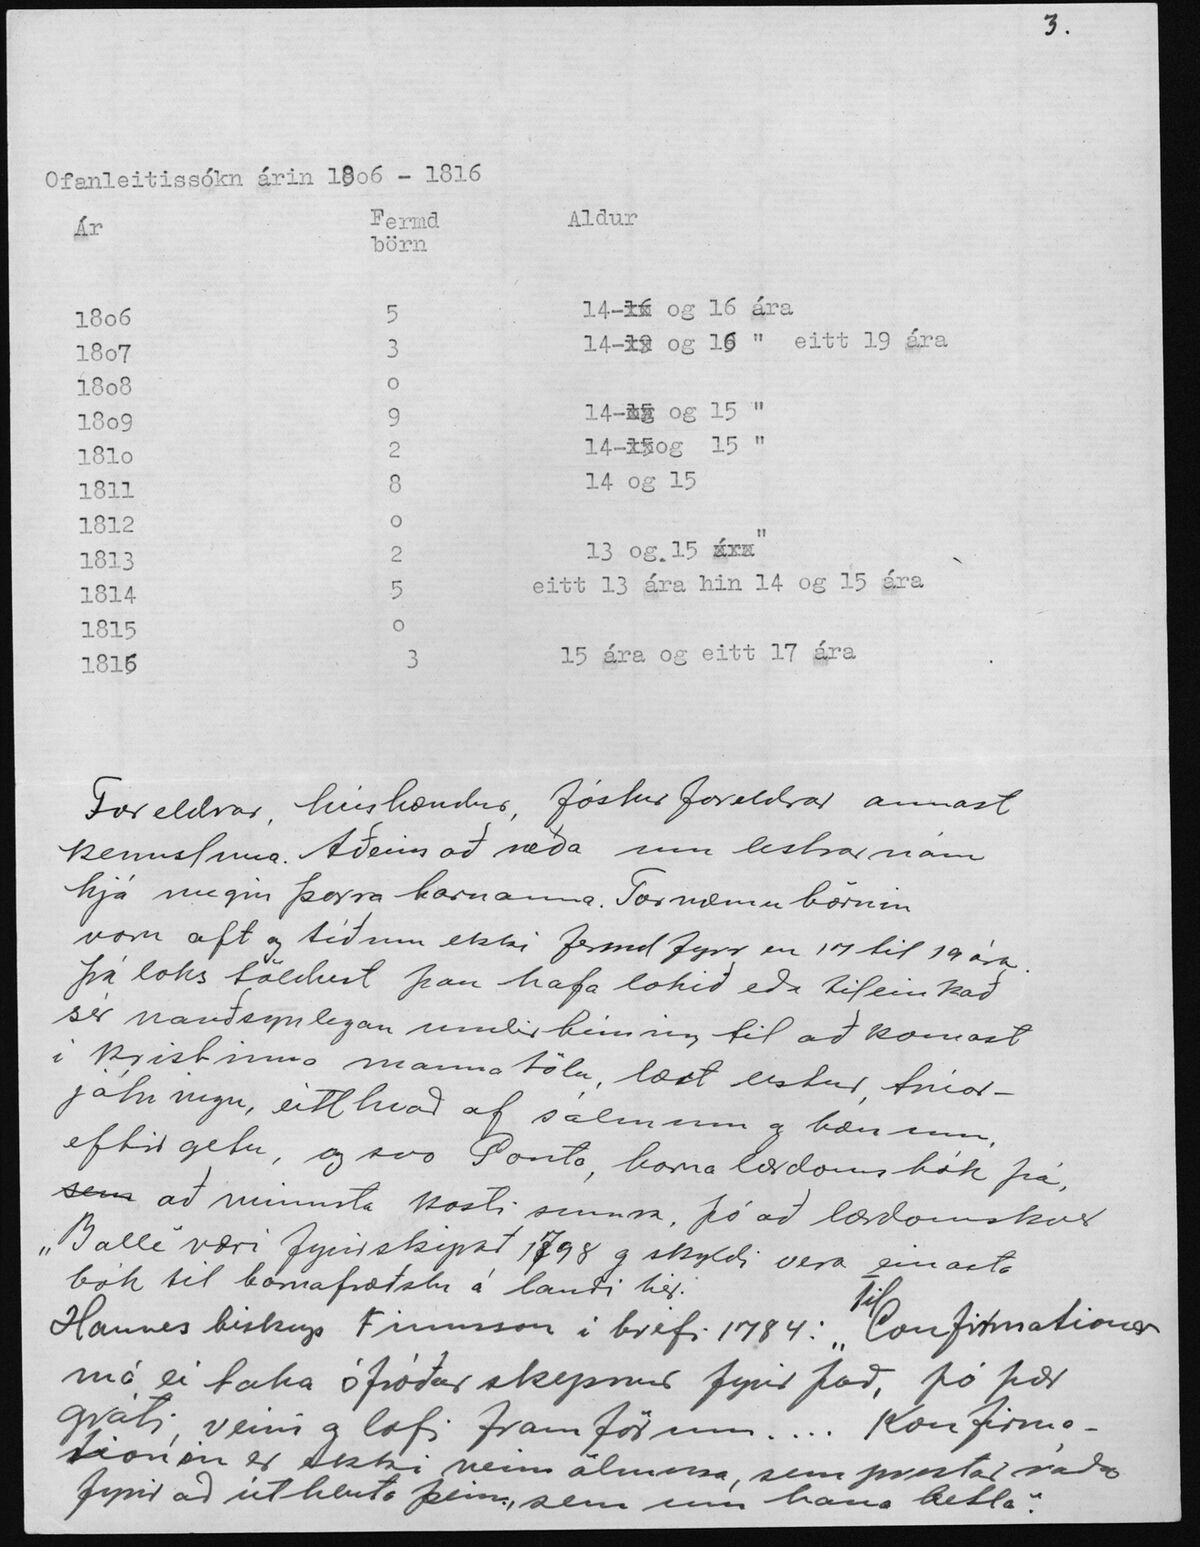 3.
Ofanleitissókn árin 18o6 - 1816
Ár Fermd börn Aldur
18o6 5 14- og 16 ára
18o7 3 14- og 16 " eitt 19 ára
18o8 o
18o9 9 14- og 15 "
181o 2 14- og 15 "
1811 8 14 og 15
1812 o
1813 2 13 og 15 "
1814 5 eitt 13 ára hin 14 og 15 ára
1815 o
1816 3 15 ára og eitt 17 ára
Foreldrar, húsbændur, fósturforeldrar annast
kennsluna. Aðeins að ræða um lestrarnám
hjá megin þorra barnanna. Tornæmu börnin
voru oft og tíðum ekki fermd fyrr en 17 til 19 ára.
Þá loks töldust þau hafa lokið eða tileinkað
sér nauðsynlegan undirbúning til að komast
í kristinna manna tölu, lært lestur, trúar-
játningu, eitthvað af sálmum og bænum,
eftir getu, og svo Ponta, barnalærdómsbók þá,
sem að minnsta kosti sunna, þó að lærdómskver
„Balle" væri fyrirskipað 1798 og skyldi vera einasta
bók til barnafræðslu á landi hér.
Hannes biskup Finnsson í bréfi 1784: „Til Confirmationar
má ei taka ófróðar skepnur fyrir það, þó þær
gráti, veini og lofi framförum.... Konfirma-
tiónin er ekki nein ölmusa, sem prestar ráða
fyrir að úthluta þeim, sem um hana betla".